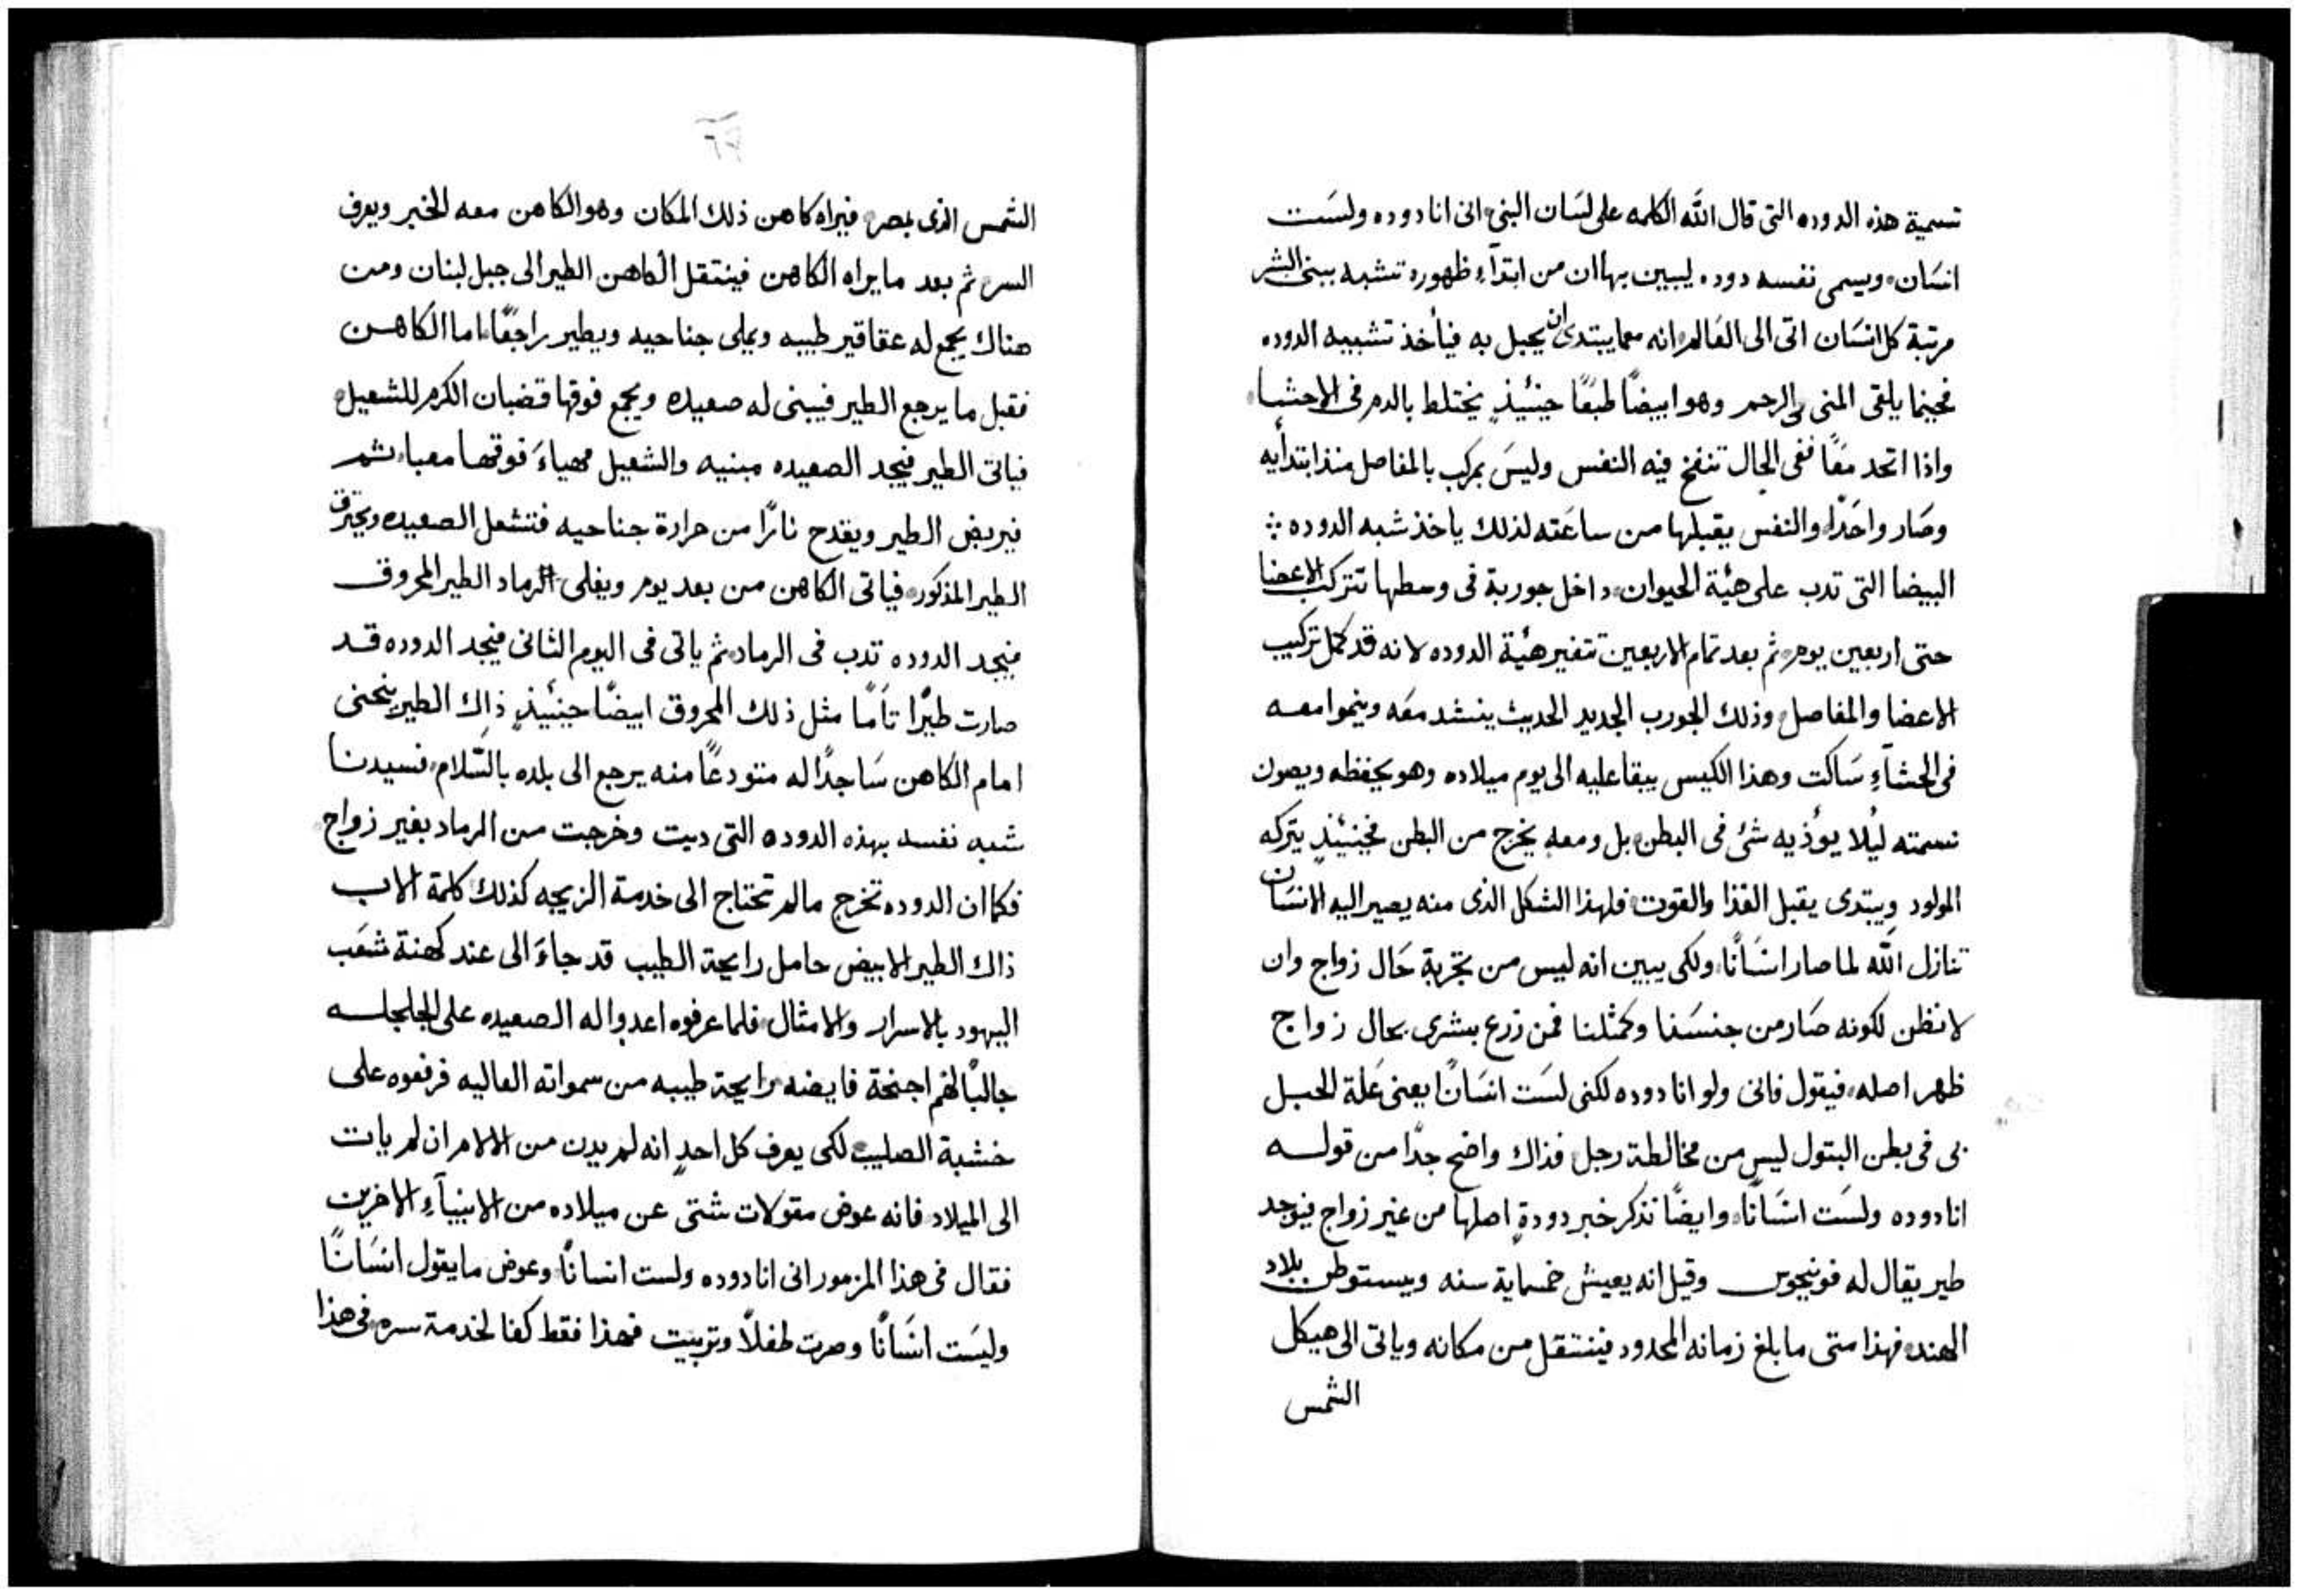 تسمية هذه الدوده التى قال الله الكلمه على لسَان النبى انى انا دوده ولسَت
انسَان ويسمى نفسه دوده ليبين بها ان من ابتدآءِ ظهوره تشبه ببنى البشر
مرتبة كل انسَان اتى الى العَالم انه معما يبتدى ان يحبل به فيأخذ تشبيه الدوده
فحينما يلقى المنى فى الرحم وهو ابيضًا طبعًا حينئيذٍ يختلط بالدم فى الاحشا
واذا اتحد معًا ففى الحال تنفخ فيه النفس وليسَ بمركب بالمفاصل منذ ابتدأيه
وصَار واحدًا والنفس يقبلها من ساعَته لذلك ياخذ شبه الدوده
البيضا التى تدب على هيئة الحيوان داخل جوربة فى وسطها تتركب الاعضا
حتى اربعين يوم ثم بعد تمام الاربعين تتغير هيئة الدوده لانه قد كمل تركيب
الاعضا والمفاصل وذلك الجورب الجديد الحديث ينشد معَه وينموا معه
فى الحشآءِ سَاكت وهذا الكيس يبقا عليه الى يوم ميلاده وهو يحفظه ويصون
نسمته ليُلا يوُذيه شئ فى البطن بل ومعه يخرج من البطن فحينئيذٍ يتركه
المولود ويبتدى يقبل الغذا والقوت فلهذا الشكل الذى منه يصير اليه الانسَان
تنازل الله لما صار انسَانًا ولكى يبين انه ليس من بتجربة حَال زواج وان
لا نظن لكونه صَار من جنسَنا وكمثلنا فمن زرع بشرى بحال زواج
ظهر اصله فيقول فانى ولو انا دوده لكنى لسَت انسَانًا بعنى عَلة الحبل
بى فى بطن البتول ليس من مخالطة رجل فذاك واضح جدًا من قوله
انا دوده ولسَت انسَانًا وايضًا نذكر خبر دودةٍ اصلها من غير زواج فيوجد
طير يقال له فونيجوس وقيل انه يعيش خمسماية سنه ويستوطن بلاد
الهند فهذا متى ما بلغ زمانه المحدود فينتقل من مكانه وياتى الى هيكل
الشمس
الشمس الذى بمصر فيراه كاهن ذلك المكان وهو الكاهن معه الخبر ويعرف
السر ثم بعد ما يراه الكاهن فينتقل الكاهن الطير الى جبل لبنان ومن
هناك يجمع له عقاقير طيبه ويملى جناحيه ويطير راجعًا اما الكاهن
فقبل ما يرجع الطير فيبنى له صعيده ويجمع فوقها قضبان الكرم للشعيل
فياتى الطير فيجد الصعيده مبنيه والشعيل مهياءَ فوقها معبا ثم
فيربض الطير ويقدح نارًا من حرارة جناحيه فتشعل الصعيده ويحترق
الطير المذكور فياتى الكاهن من بعد يوم ويفلى الرماد الطير المحروق
فيجد الدوده تدب فى الرماد ثم ياتى فى اليوم الثانى فيجد الدوده قد
صارت طيرًا تآمًا مثل ذلك المحروق ابيضًا حينئيذٍ ذاك الطير ينحنى
امام الكاهن سَاجدًا له متودعًا منه يرجع الى بلده بالسَّلام فسيدنا
شبه نفسه بهذه الدوده التى دبت وخرجت من الرماد بغير زواج
فكما ان الدوده تخرج ما لم تحتاج الى خدمة الزيجه كذلك كلمة الاب
ذاك الطير الابيض حامل رايحة الطيب قد جاءَ الى عند كهنة شعَب
اليهود بالاسرار والامثال فلما عرفوه اعدوا له الصعيده على الجلجله
جالبًا لهم اجنحة فايضه رايحة طيبه من سمواته العاليه فرفعوه على
خشبة الصليب لكى يعرف كل احدٍ انه لم يدن من الالام ان لم يات
الى الميلاد فانه عوض مقولات شتى عن ميلاده من الانبيآءِ الاخرين
فقال فى هذا المزمور انى انا دوده ولست انسانًا وعوض ما يقول انسَانًا
وليسَت انسَانًا وصرت طفلاً وتربيت فهذا فقط كفا لخدمة سره فى هذا